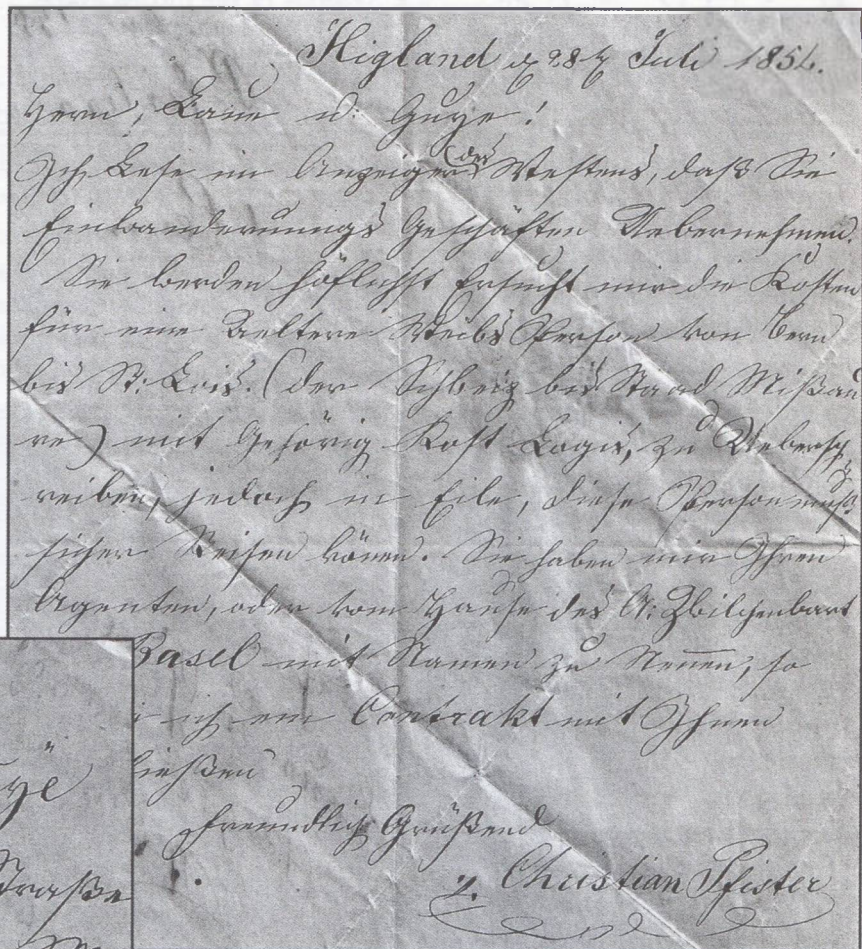 Higland d 28t Juli 1854.
Herrn, Laue u: Guye!
Ich Lese im Anzeiger (des) Westens, daß Sie
Einwanderungs Geschäften Uebernehmen.
Sie werden höflichst Ersucht mir die Kosten
für eine Aeltere Weibs Person von Bern
bis St: Lois. (der Schweiz bis Staad Mißau
re) mit Gehörig Kost Logis, zu Uebersch
reiben, jedoch in Eile, diese Person muß
sicher Reisen könen. Sie haben mir Ihren
Agenten, oder vom Hause des A: Zwilchenbart
Basel mit Namen zu Nenen, so
ich ein Contrakt mit Ihnen
ließen
Freundlich Grüßend
Christian Pfister
yë
Straße